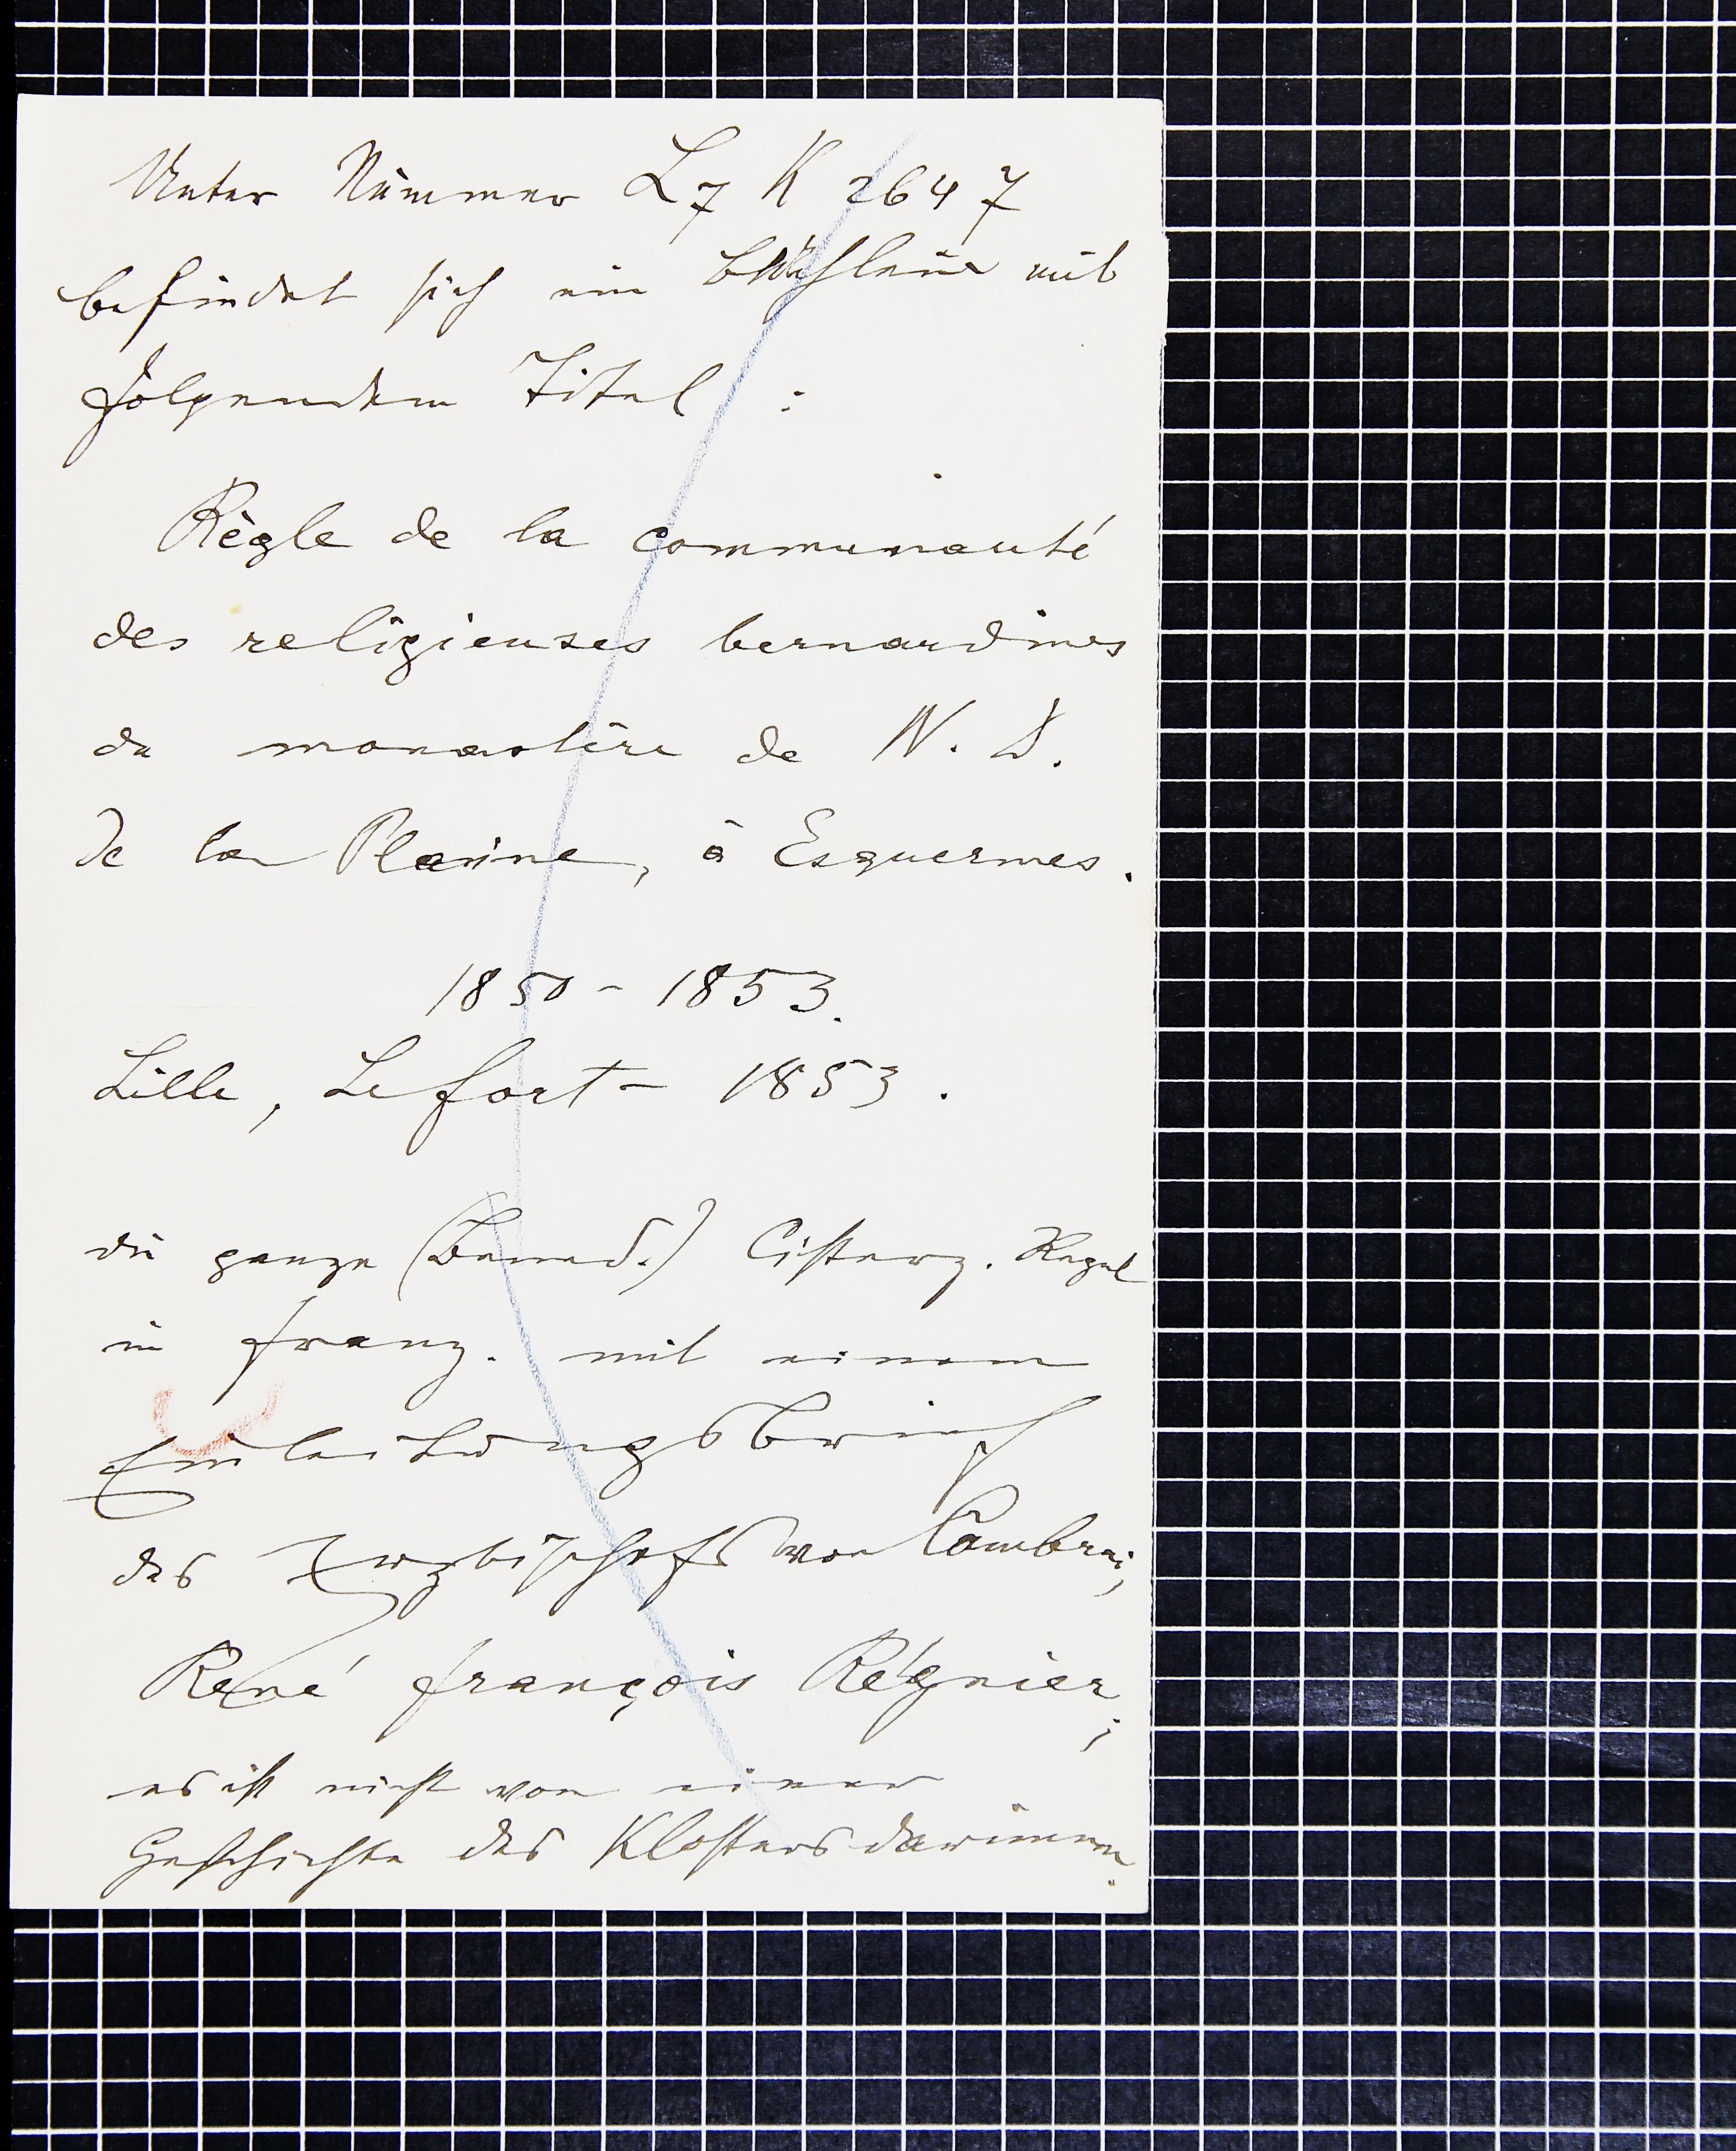 Unter Nummer L7 K 2647
befindet sich ein Büchlein mit
folgendem Titel :
Règle de la communauté
des religieuses bernardines
du monastère de N. D.
de la Plaine, à Esquermes.
1850 - 1853.
Lille, Lefort - 1853.
die ganze (Bened.) Cisterz. Regel
in franz. mit einem
Einleitungsbrief
des Erzbischofs von Cambrai,
René françois Régnier;
es ist nichts von einer
Geschichte des Klosters darinnen.